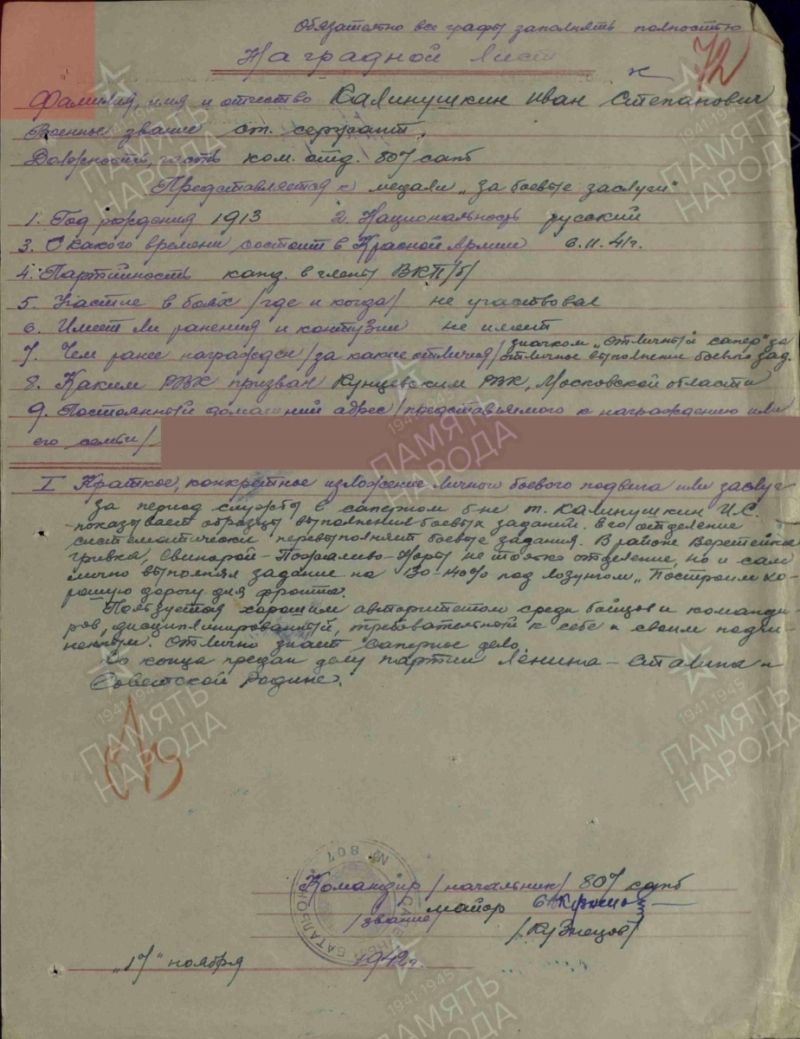 Обязательно все графы заполнять полностью
72
Наградной лист
Фамилия, имя и отчество Калинушкин Иван Степанович
Военное звание ст. сержант.
Должность, часть ком. отд. 807 сапб
Представляется к медали „за боевые заслуги"
1. Год рождения 1913 2. Национальность русский
3. С какого времени состоит в Красной Армии 6.11.41г.
4. Партийность канд. в члены ВКП/б/
5. Участие в боях /где и когда/ не участвовал
6. Имеет ли ранения и контузии не имеет
7. Чем ранее награжден /за какие отличия/ значком „отличный сапер" за
отличное выполнении боевых зад.
8. Каким РВК призван Кунцевским РВК, Московской области
9. Постоянный домашний адрес /представляемого к награждению или
его семьи/
I Краткое, конкретное изложение личного боевого подвига или заслуг
за период службы в саперном б-не т. Калинушкин И.С.
показывает образцы выполнения боевых заданий. Его отделение
систематически перевыполняет боевые задания. В районе Веретейка
гривка, Свинорой-Пожалиево- не только отделение, но и сам
лично выполнял задание на 130-140% под лозунгом „Построим хо-
рошую дорогу для фронта.
Пользуется хорошим авторитетом среди бойцов и команди-
ров, дисциплинированный, требовательный к себе и своим подчи-
ненным. Отлично знает саперное дело.
До конца предан делу партии Ленина-Сталина и
Советской Родине.
Командир /начальник/ 807 сапб
майор
/звание/
/Кузнецов/
„17" ноября 1942г.
САПЕРНЫЙ БАТАЛЬОН № 807
ПАМЯТЬ НАРОДА
1941-1945